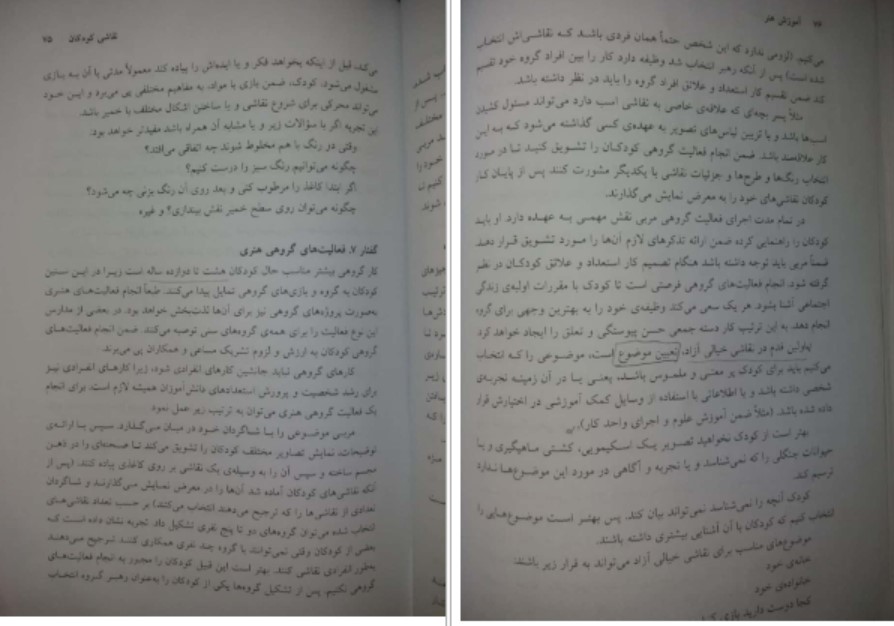 نقاشی کودکان ۷۵
می‌کند، قبل از اینکه بخواهد فکر و یا ایده‌اش را پیاده کند معمولاً مدتی با آن به بازی
مشغول می‌شود. کودک، ضمن بازی با مواد، به مفاهیم مختلفی پی می‌برد و این خود
می‌تواند محرکی برای شروع نقاشی و یا ساختن اشکال مختلف با خمیر باشد.
این تجربه اگر با سؤالات زیر و یا مشابه آن همراه باشد مفیدتر خواهد بود.
وقتی دو رنگ با هم مخلوط شوند چه اتفاقی می‌افتد؟
چگونه می‌توانیم رنگ سبز را درست کنیم؟
اگر ابتدا کاغذ را مرطوب کنی و بعد روی آن رنگ بزنی چه می‌شود؟
چگونه می‌توان روی سطح خمیر نقش بیندازی؟ و غیره
گفتار ۷. فعالیت‌های گروهی هنری
کار گروهی بیشتر مناسب حال کودکان هشت تا دوازده ساله است زیرا در این سنین
کودکان به گروه و بازی‌های گروهی تمایل پیدا می‌کنند. طبعاً انجام فعالیت‌های هنری
به‌صورت پروژه‌های گروهی نیز برای آن‌ها لذت‌بخش خواهد بود. در بعضی از مدارس
این نوع فعالیت را برای همه‌ی گروه‌های سنی توصیه می‌کنند. ضمن انجام فعالیت‌های
گروهی کودکان به ارزش و لزوم تشریک مساعی و همکاران پی می‌برند.
کارهای گروهی نباید جانشین کارهای انفرادی شود، زیرا کارهای انفرادی نیز
برای رشد شخصیت و پرورش استعدادهای دانش‌آموزان همیشه لازم است. برای انجام
یک فعالیت گروهی هنری می‌توان به ترتیب زیر عمل نمود
مربی موضوعی را با شاگردان خود در میان می‌گذارد. سپس با ارائه‌ی
توضیحات، نمایش تصاویر مختلف کودکان را تشویق می‌کند تا صحنه‌ای را در ذهن
مجسم ساخته و سپس آن را به وسیله‌ی یک نقاشی بر روی کاغذی پیاده کنند. (پس از
آنکه نقاشی‌های کودکان آماده شد آن‌ها را در معرض نمایش می‌گذارند و شاگردان
تعدادی از نقاشی‌ها را که ترجیح می‌دهند انتخاب می‌کنند) بر حسب تعداد نقاشی‌های
انتخاب شده می‌توان گروه‌های دو تا پنج نفری تشکیل داد. تجربه نشان داده است که
بعضی از کودکان وقتی نمی‌توانند با گروه چند نفری همکاری کنند ترجیح می‌دهند
به‌طور انفرادی نقاشی کنند. بهتر است این قبیل کودکان را مجبور به انجام فعالیت‌های
گروهی نکنیم. پس از تشکیل گروه‌ها یکی از کودکان را به‌عنوان رهبر گروه انتخاب
۷۶ آموزش هنر
می‌کنیم. (لزومی ندارد که این شخص حتماً همان فردی باشد که نقاشی‌اش انتخاب
شده است) پس از آنکه رهبر انتخاب شد وظیفه دارد کار را بین افراد گروه خود تقسیم
کند ضمن تقسیم کار استعداد و علائق افراد گروه را باید در نظر داشته باشد.
مثلاً پسر بچه‌ای که علاقه‌ی خاصی به نقاشی اسب دارد می‌تواند مسئول کشیدن
اسب‌ها باشد و یا تزیین لباس‌های تصویر به عهده‌ی کسی گذاشته می‌شود که به این
کار علاقمند باشد. ضمن انجام فعالیت گروهی کودکان را تشویق کنید تا در مورد
انتخاب رنگ‌ها و طرح‌ها و جزئیات نقاشی با یکدیگر مشورت کنند پس از پایان کار
کودکان نقاشی‌های خود را به معرض نمایش می‌گذارند.
در تمام مدت اجرای فعالیت گروهی مربی نقش مهمی به عهده دارد. او باید
کودکان را راهنمایی کرده ضمن ارائه تذکرهای لازم آن‌ها را مورد تشویق قرار دهد.
ضمناً مربی باید توجه داشته باشد هنگام تصمیم کار استعداد و علائق کودکان در نظر
گرفته شود. انجام فعالیت‌های گروهی فرصتی است تا کودک با مقررات اولیه‌ی زندگی
اجتماعی آشنا بشود. هر یک سعی می‌کند وظیفه‌ی خود را به بهترین وجهی برای گروه
انجام دهد. به این ترتیب کار دسته جمعی حسن پیوستگی و تعلق را ایجاد خواهد کرد.
اولین قدم در نقاشی خیالی آزاد، تعیین موضوع است، موضوعی را که انتخاب
می‌کنیم باید برای کودک پر معنی و ملموس باشد، یعنی یا در آن زمینه تجربه‌ی
شخصی داشته باشد و یا اطلاعاتی با استفاده از وسایل کمک آموزشی در اختیارش قرار
داده شده باشد. (مثلاً ضمن آموزش علوم و اجرای واحد کار).
بهتر است از کودک نخواهید تصویر یک اسکیمویی، کشتی ماهیگیری و یا
حیوانات جنگلی را که نمی‌شناسد و یا تجربه و آگاهی در مورد این موضوع‌ها ندارد
ترسیم کند.
کودک آنچه را نمی‌شناسد نمی‌تواند بیان کند. پس بهتر است موضوع‌هایی را
انتخاب کنیم که کودکان با آن آشنایی بیشتری داشته باشند.
موضوع‌های مناسب برای نقاشی خیالی آزاد می‌تواند به قرار زیر باشند:
خانه‌ی خود
خانواده‌ی خود
کجا دوست دارید بازی